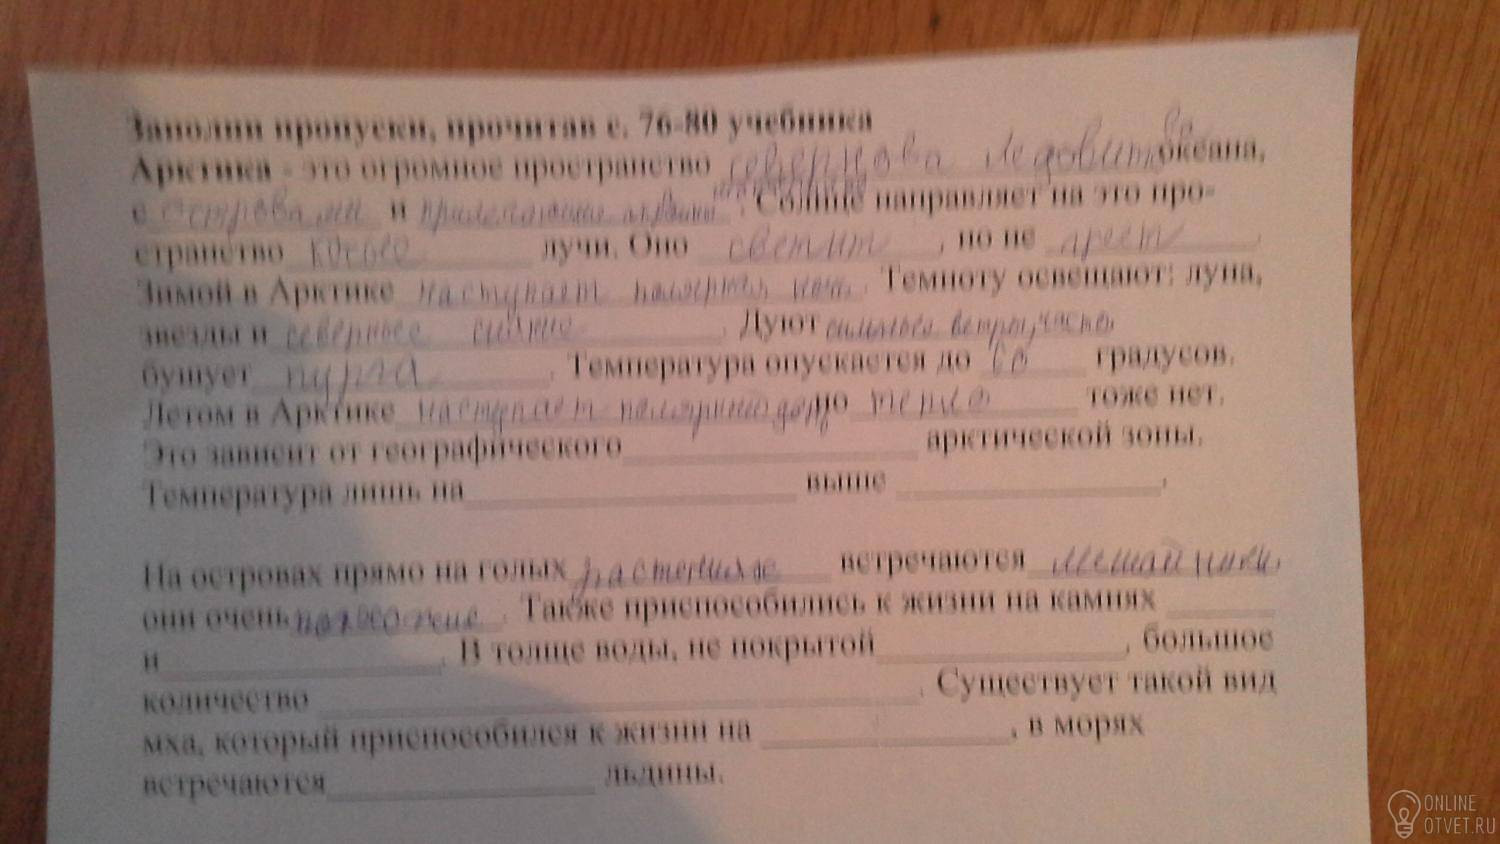 Заполни пропуски, прочитав с. 76-80 учебника
Арктика - это огромное пространство севернова Ледовитова океана,
с островами и . Солнце направляет на это про-
странство косые лучи. Оно светит, но не греет
Зимой в Арктике наступает полярная ночь. Темноту освещают: луна,
звезды и северное сияние. Дуют сильные ветры, часто
бушует пурга. Температура опускается до 60 градусов.
Летом в Арктике наступает полярный день, но тепла тоже нет.
Это зависит от географического арктической зоны.
Температура лишь на выше .
На островах прямо на голых растениях встречаются лешайники,
они очень . Также приспособились к жизни на камнях
и . В толще воды, не покрытой , большое
количество . Существует такой вид
мха, который приспособился к жизни на , в морях
встречаются льдины.
ONLINE
OTVET.RU